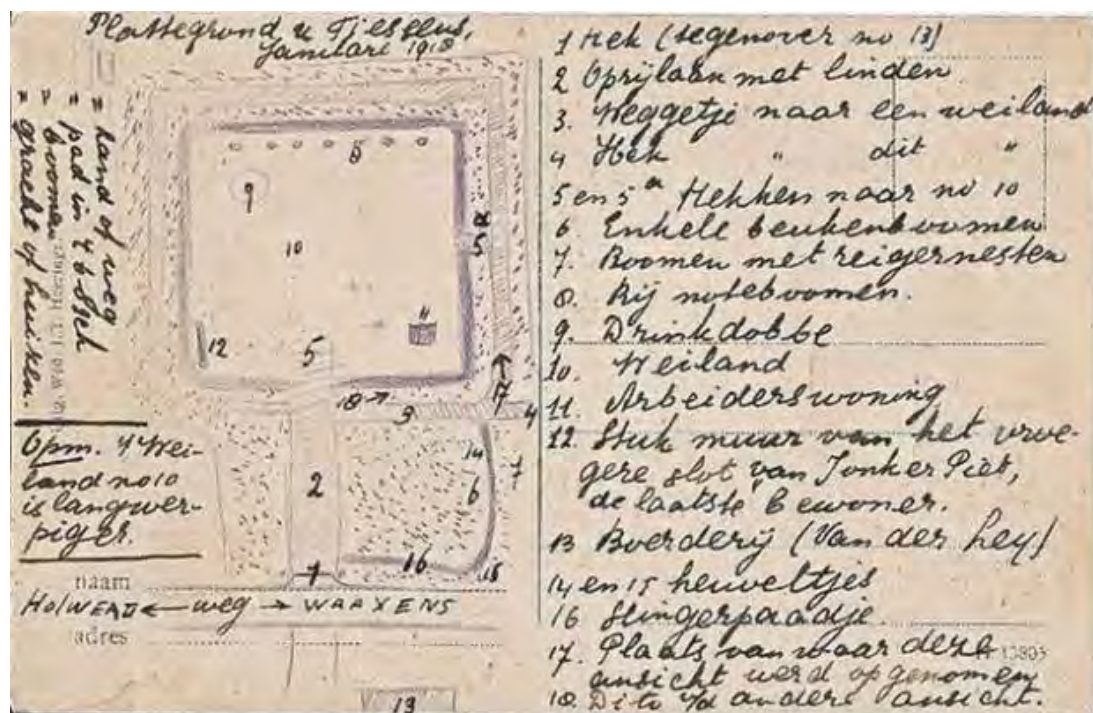 Plattegrond v. Tjessens,
Januari 1918
" land of weg
" pad in 't bosch
" boomen
" gracht of huizen.
Opm. 't Wei-
land no 10
is langwer-
piger.
8
9
10
8
5
11
12
5
18 →
3
17
4
2
14
6
7
16
15
1
naam
HOLWERD ← weg → WAAXENS
adres
13
1 Hek (tegenover no 13)
2 Oprijlaan met linden
3. Weggetje naar een weiland
4 Hek " dit "
5 en 5a Hekken naar no 10
6. Enkele beukenboomen
7. Boomen met reigernesten
8. Rij noteboomen.
9. Drinkdobbe
10. Weiland
11. Arbeiderswoning
12. Stuk muur van het vroe-
gere slot van Jonker Piet,
de laatste bewoner.
13 Boerderij (Van der Ley)
14 en 15 heuveltjes
16 Slingerpaadje
17. Plaats van waar deze
ansicht werd opgenomen
18. Dito v/d andere ansicht.